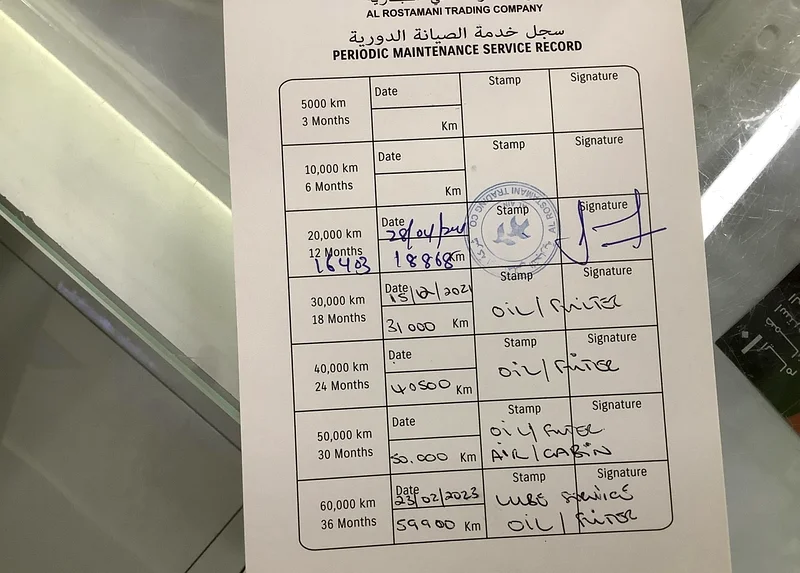 AL ROSTAMANI TRADING COMPANY
سجل خدمة الصيانة الدورية
PERIODIC MAINTENANCE SERVICE RECORD
5000 km
3 Months
Date
Km
Stamp
Signature
10,000 km
6 Months
Date
Km
Stamp
Signature
20,000 km
12 Months
16403
Date
28/04/
18868 Km
Stamp
AL ROSTAMANI TRADING CO.
Signature
30,000 km
18 Months
Date
15/12/2021
31000 Km
Stamp
Signature
OIL / FILTER
40,000 km
24 Months
Date
40500 Km
Stamp
Signature
OIL / FILTER
50,000 km
30 Months
Date
50.000 Km
Stamp
Signature
OIL / FILTER
AIR / CABIN
60,000 km
36 Months
Date
23/02/2023
59900 Km
Stamp
Signature
LUBE SERVICE
OIL / FILTER